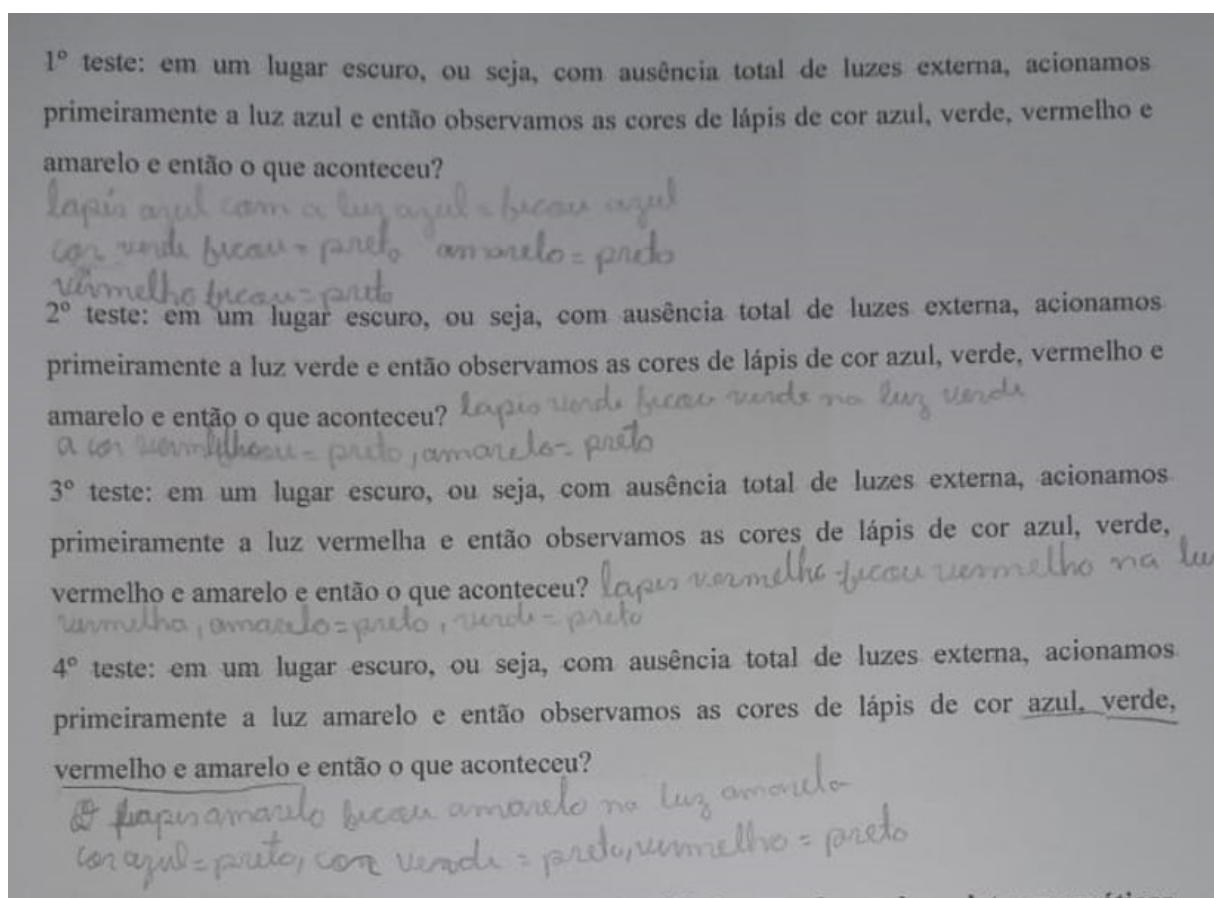 1º teste: em um lugar escuro, ou seja, com ausência total de luzes externa, acionamos
primeiramente a luz azul e então observamos as cores de lápis de cor azul, verde, vermelho e
amarelo e então o que aconteceu?
lapis azul com a luz azul = ficou azul
cor verde ficou = preto amarelo = preto
vermelho ficou = preto
2º teste: em um lugar escuro, ou seja, com ausência total de luzes externa, acionamos
primeiramente a luz verde e então observamos as cores de lápis de cor azul, verde, vermelho e
amarelo e então o que aconteceu? lapis verde ficou verde na luz verde
a cor = preto, amarelo = preto
3º teste: em um lugar escuro, ou seja, com ausência total de luzes externa, acionamos
primeiramente a luz vermelha e então observamos as cores de lápis de cor azul, verde,
vermelho e amarelo e então o que aconteceu? lapis vermelho ficou vermelho na lu
vermelha, amarelo = preto, verde = preto
4º teste: em um lugar escuro, ou seja, com ausência total de luzes externa, acionamos
primeiramente a luz amarelo e então observamos as cores de lápis de cor azul, verde,
vermelho e amarelo e então o que aconteceu?
lapis amarelo ficou amarelo na luz amarela
cor azul = preto, cor verde = preto, vermelho = preto